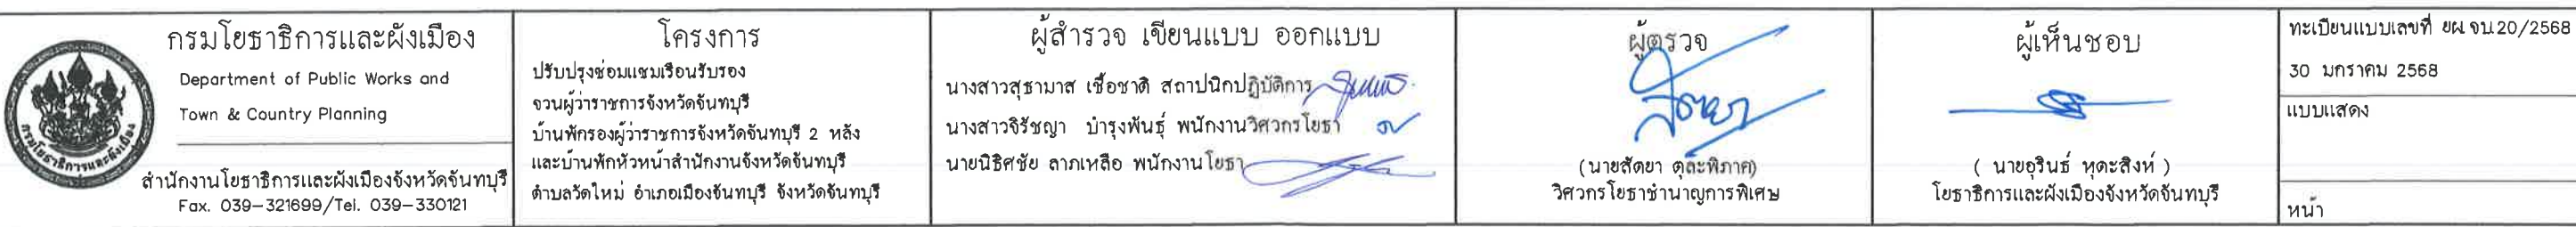 กรมโยธาธิการและผังเมือง
Department of Public Works and
Town & Country Planning
กรมโยธาธิการและผังเมือง
สำนักงานโยธาธิการและผังเมืองจังหวัดจันทบุรี
Fax. 039-321699/Tel. 039-330121
โครงการ
ปรับปรุงซ่อมแซมเรือนรับรอง
จวนผู้ว่าราชการจังหวัดจันทบุรี
บ้านพักรองผู้ว่าราชการจังหวัดจันทบุรี 2 หลัง
และบ้านพักหัวหน้าสำนักงานจังหวัดจันทบุรี
ตำบลวัดใหม่ อำเภอเมืองจันทบุรี จังหวัดจันทบุรี
ผู้สำรวจ เขียนแบบ ออกแบบ
นางสาวสุธามาส เชื้อชาติ สถาปนิกปฏิบัติการ
นางสาวจิรัชญา บำรุงพันธุ์ พนักงานวิศวกรโยธา
นายนิธิศชัย ลาภเหลือ พนักงานโยธา
ผู้ตรวจ
(นายสัตยา ตุละพิภาค)
วิศวกรโยธาชำนาญการพิเศษ
ผู้เห็นชอบ
( นายอุรินธ์ หุตะสิงห์ )
โยธาธิการและผังเมืองจังหวัดจันทบุรี
ทะเบียนแบบเลขที่ ยผ.จบ.20/2568
30 มกราคม 2568
แบบแสดง
หน้า